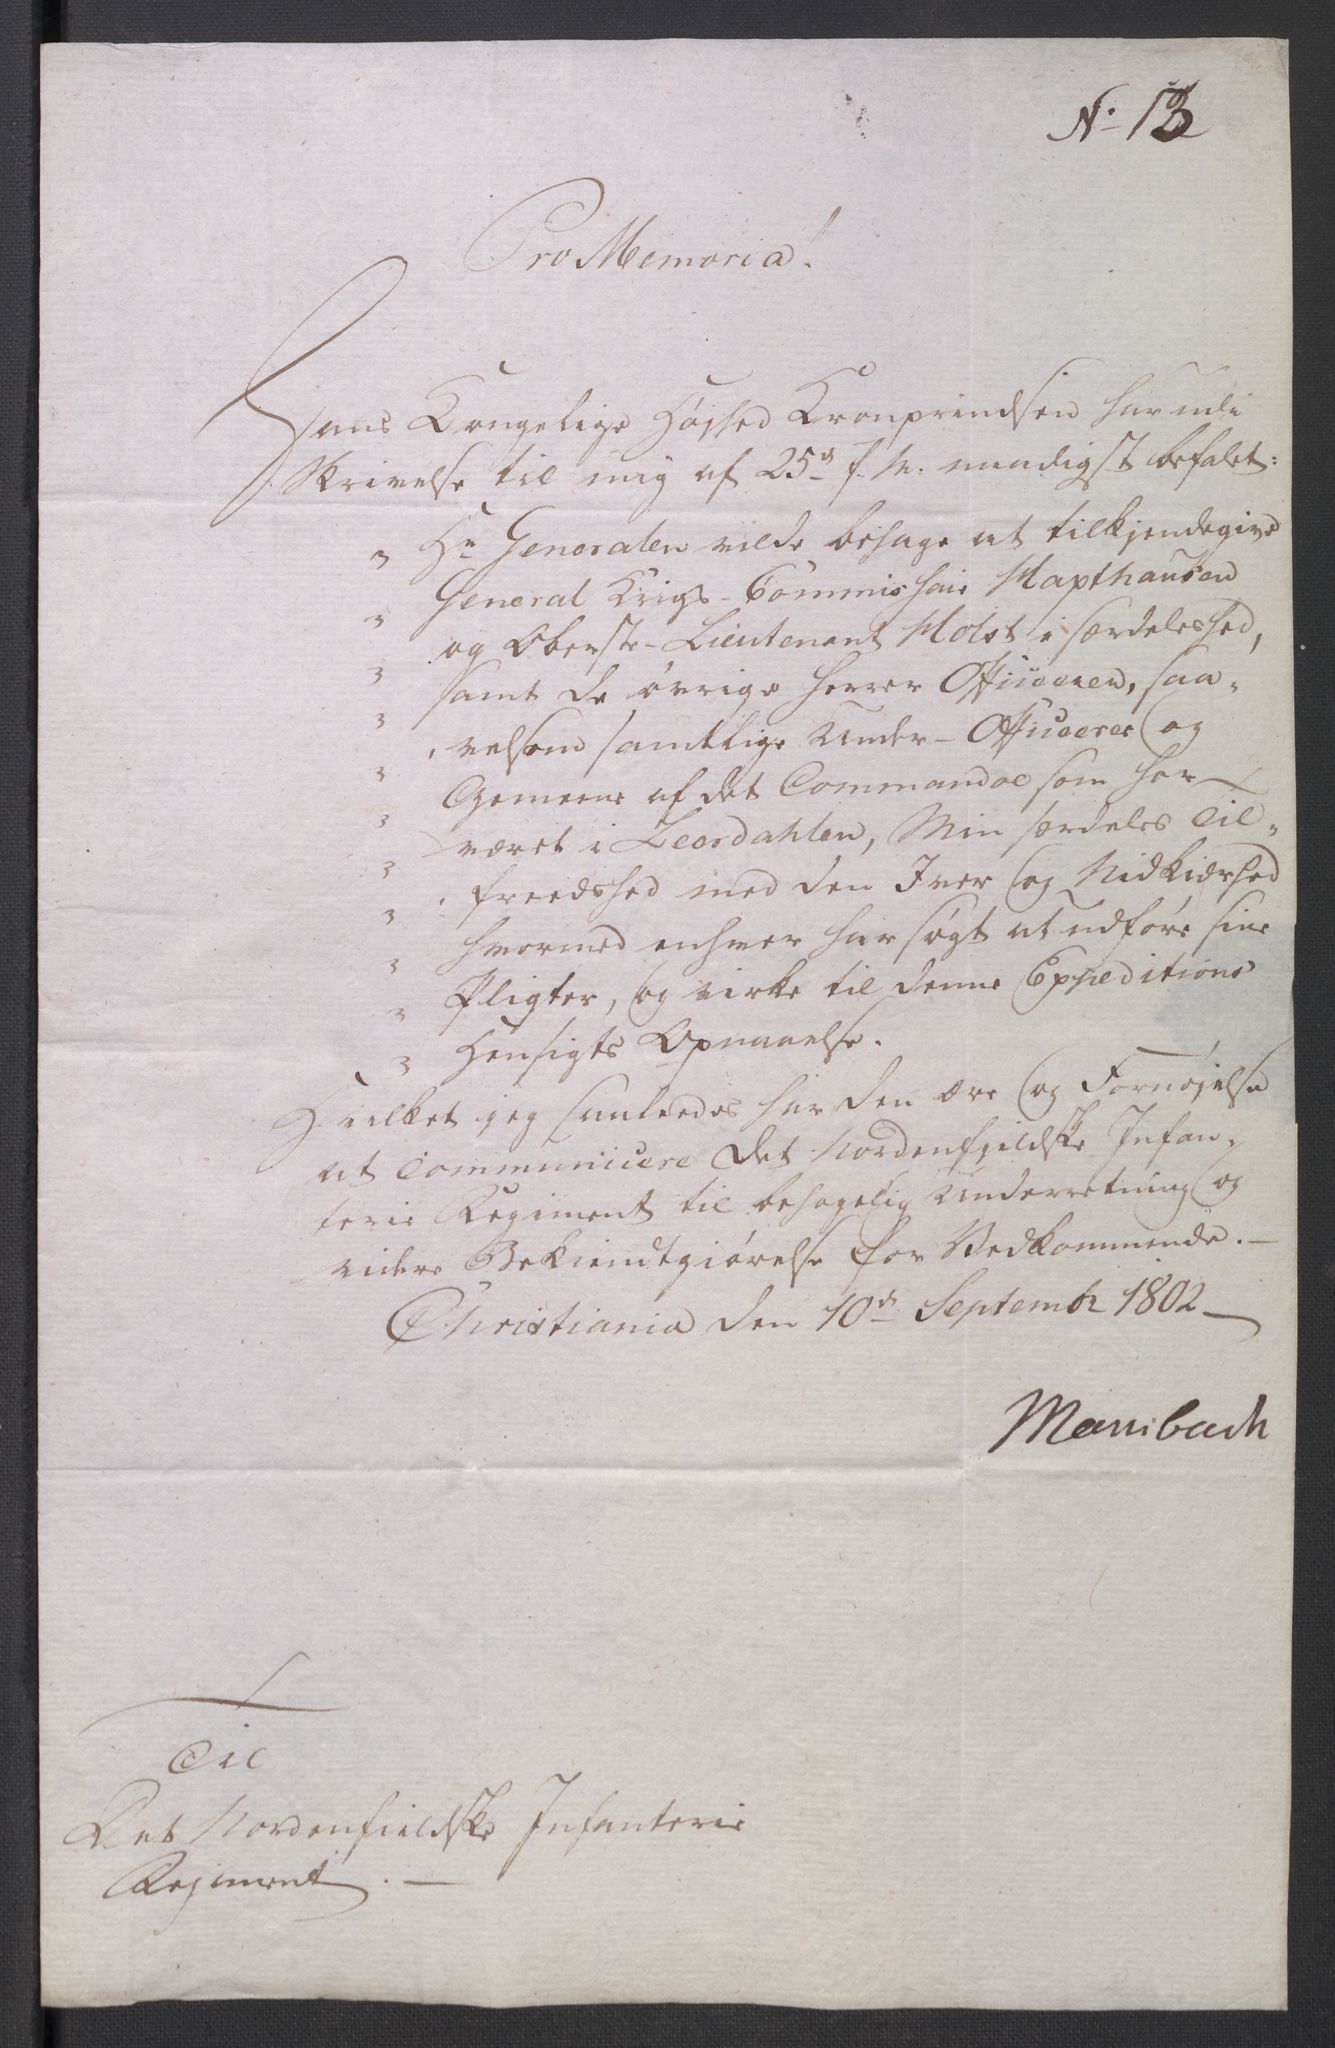 No 13
Pro Memoria!
Hans Kongelige Høyhed Kronprindsen har udi
Skrivelse til mig af 25d f. M. naadigst befalet:
" Hr Generalen vilde behage at tilkjendegive
" General Krigs-Commissair Hapthausen
" og Oberste-Lieutenant Holst i særdeleshed,
" samt de øvrige Herrer Officerer, saa,
" velsom samtlige Under-Officerer og
" Gemeene af det Commandoe som har
" været i Leerdahlen, Min særdeles Til,
" freedshed med den Iver og Nidkiærhed
" hvormed enhver har søgt at udføre sine
" Pligter, og virke til denne Expeditions
" Hensigts Opnaaelse.
Hvilket jeg saaledes har den ære og Fornøjelse
at Communicere det Nordenfjeldske Infan,
terie Regiment til behagelig Underretning og
videre Bekiendtgiørelse for Vedkommende. —
Christiania den 10de Septembr 1802 —
Mansbach
Til
Det Nordenfieldske Infanterie
Regiment. —